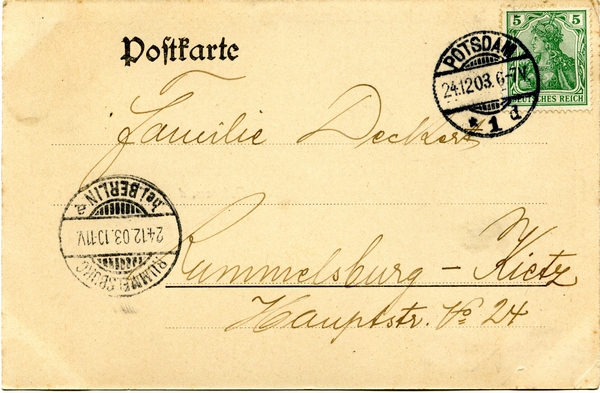 Postkarte
5 5
DEUTSCHES REICH
POTSDAM
24.12.03. 6-7V.
* 1 d
Familie Deckert
RUMMELSBURG
24.12.03. 10-11V.
bei BERLIN
Rummelsburg - Kietz
Hauptstr. No 24